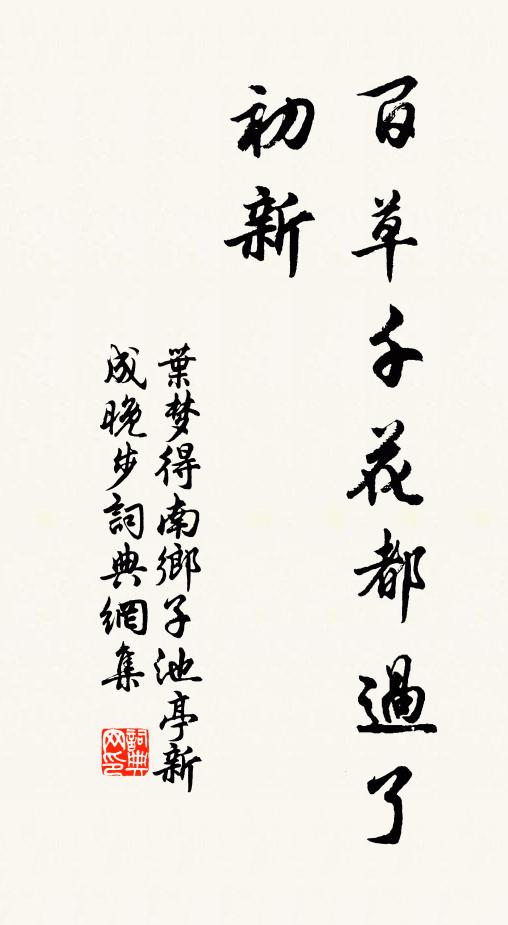 百草千花都過了
初新
葉梦得南鄉子池亭新
成晚步詞典網集
詞典
网印